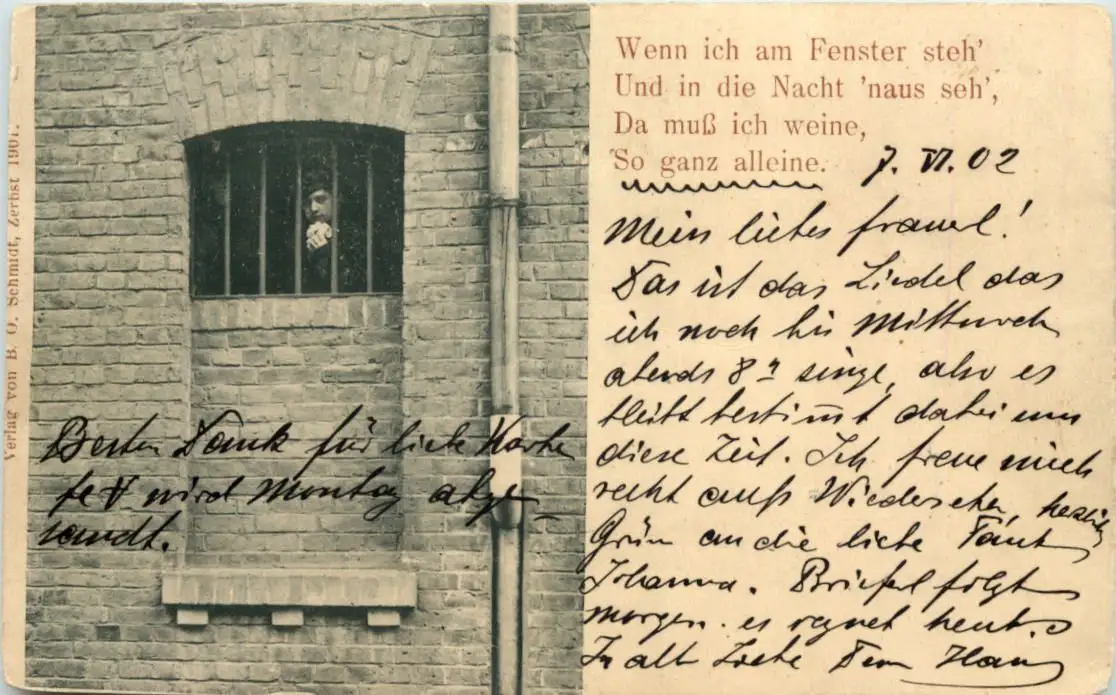 Verlag von B. O. Schmidt, Zerbst 1901.
Wenn ich am Fenster steh'
Und in die Nacht 'naus seh',
Da muß ich weine,
So ganz alleine.
7. VI. 02
Mein liebes Frauerl!
Das ist das Liedel das
ich noch bis Mittwoch
abends 8 singe, also es
bleibt bestimmt dabei um
diese Zeit. Ich freue mich
recht aufs Wiedersehen, herzlichen
an die liebe Tante
Johanna. Brieferl folgt
morgen. es regnet heute.
In alt Liebe Dein Hans
Besten Dank für liebe Karte
wird Montag abge
sandt.